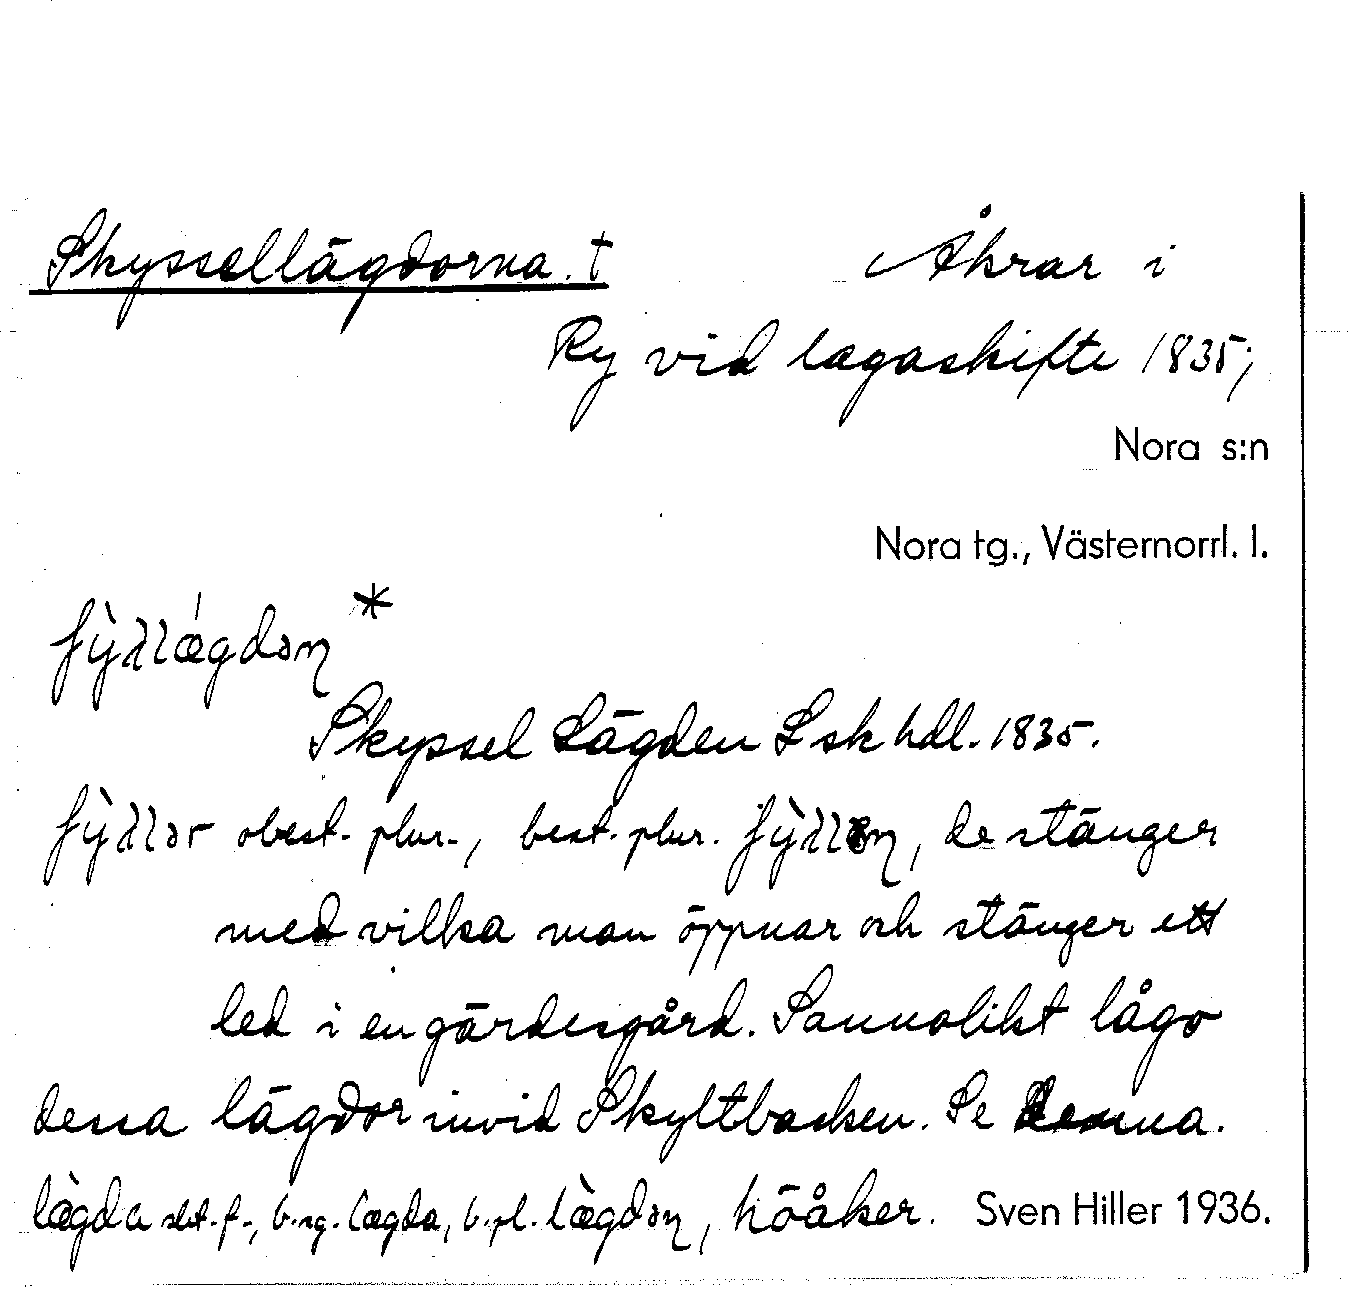 Skyssellägdorna. † Åkrar i
Ry vid lagaskifte 1835;
Nora s:n
Nora tg., Västernorrl. l.
*
Skyssel Lägden Lskhdl. 1835.
obest. plur., best. plur. , de stänger
med vilka man öppnar och stänger ett
led i en gärdesgård. Sannolikt lågo
dessa lägdor invid Skyltbacken. Se denna.
lægda sbt. f., b. sg. lægda, b. pl. , höåker. Sven Hiller 1936.